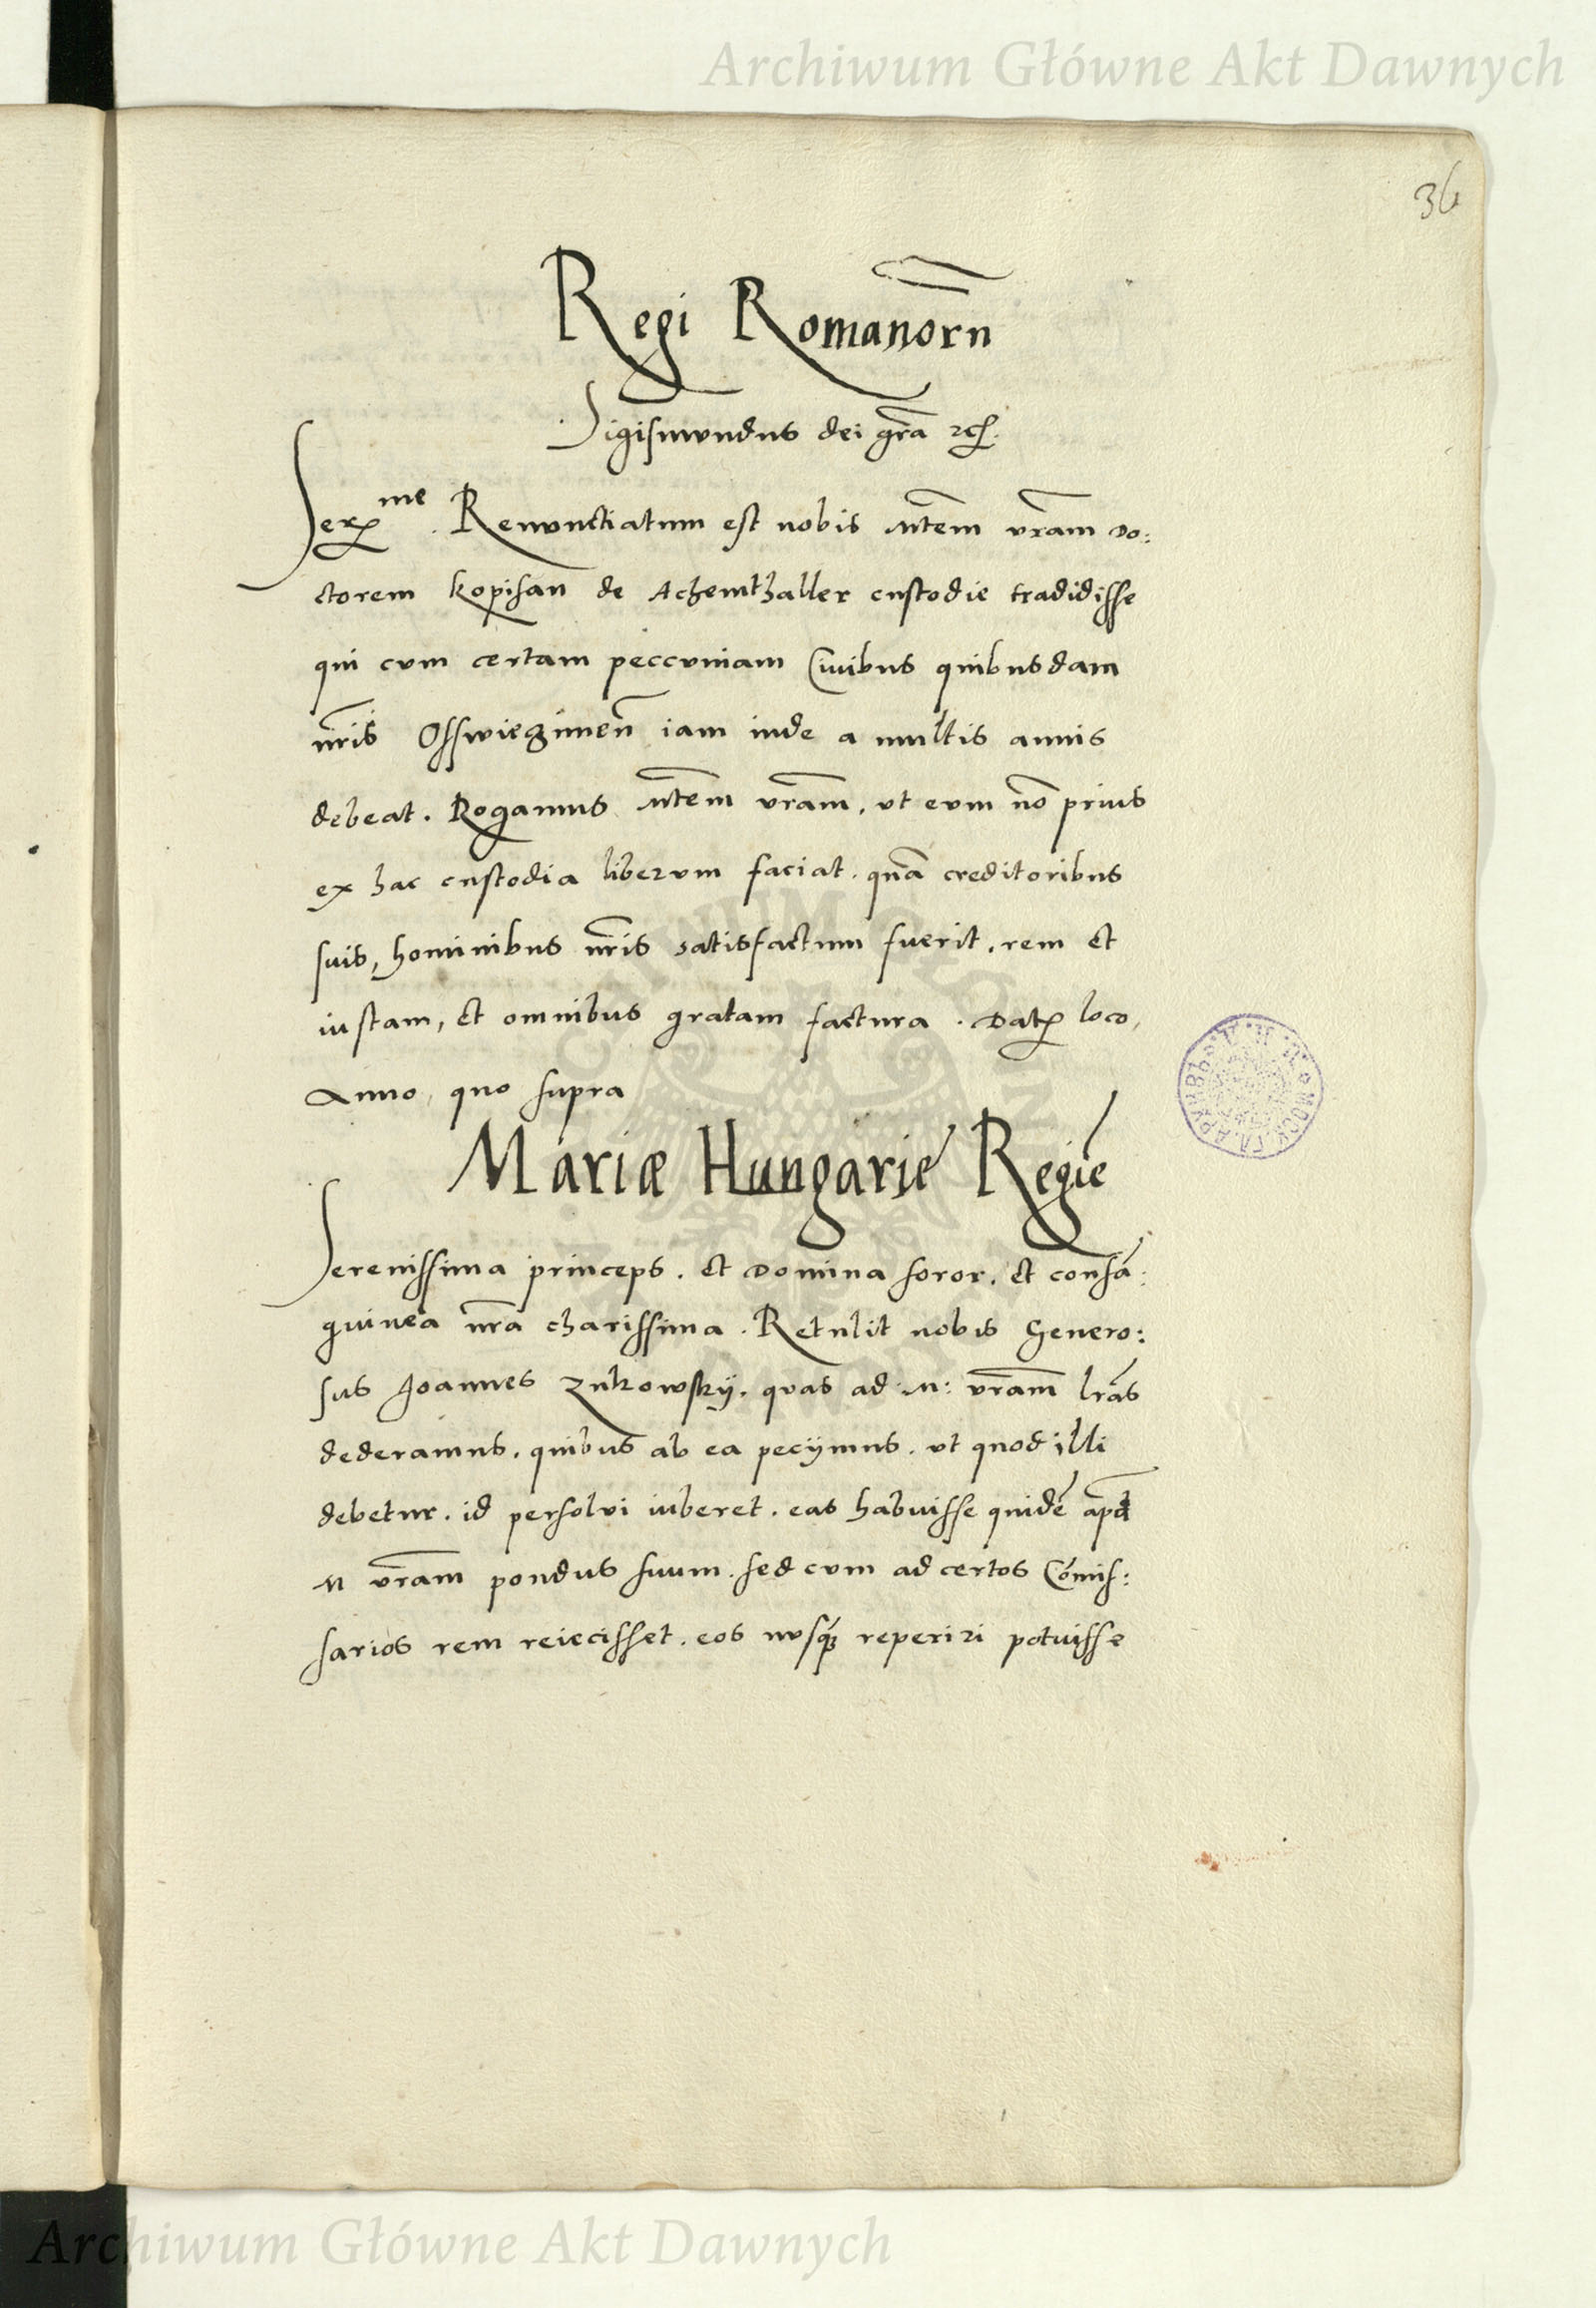 Archiwum Główne Akt Dawnych
36
Regi Romanorū
Sigismundus dei gra̅ etc.
Ser^me. Renunctiatum est nobis Mtem vram do:
ctorem kopisan de Achemthaller custodie tradidisse
qui cum certam peccuniam Civibus quibusdam
nris Osswieczimen̅ iam inde a multis annis
debeat. Rogamus Mtem vram, ut eum no̅ prius
ex hac custodia liberum faciat. qua̅ creditoribus
suis, hominibus nris satisfactum fuerit, rem et
iustam, et omnibus gratam factura. Dat. loco,
Anno, quo supra
Mariæ Hungarie Regie
Serenissima princeps. et Domina soror. et consa̅:
guinea nra charissima. Retulit nobis Genero:
sus Joannes Zukowskij. quas ad M: vram lras
dederamus. quibus ab ea pecijmus. ut quod illi
debetur. id persolvi iuberet. eas habuisse quide̅ apd
M vram pondus suum. sed cum ad certos Co̅mis:
sarios rem reiecisset. eos nusq̃ reperiri potuisse
Archiwum Główne Akt Dawnych